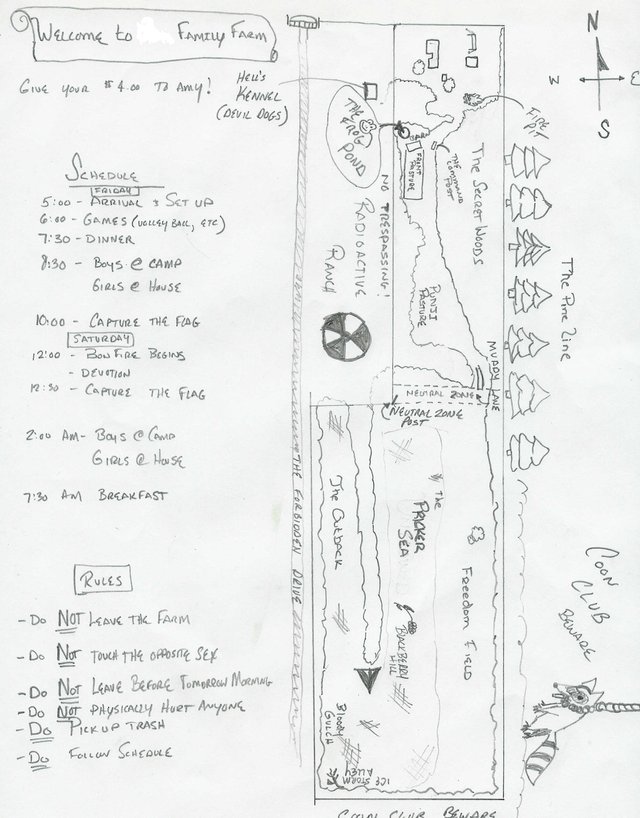 Welcome to Family Farm
Give your $4.00 to Amy!
Hell's
Kennel
(Devil Dogs)
Schedule
Friday
5:00 - Arrival & Set up
6:00 - Games (Volleyball, etc)
7:30 - Dinner
8:30 - Boys @ Camp
Girls @ House
10:00 - Capture the Flag
Saturday
12:00 - Bonfire Begins
- Devotion
12:30 - Capture the Flag
2:00 AM - Boys @ Camp
Girls @ House
7:30 AM Breakfast
Rules
- Do Not Leave the Farm
- Do Not Touch the Opposite Sex
- Do Not Leave Before Tomorrow Morning
- Do Not Physically Hurt Anyone
- Do Pick up Trash
- Do Follow Schedule
N
W E
S
The Frog
Pond
Barn
Front
Pasture
The Command
Post
Fire
Pit
The Secret Woods
The Pine Line
No Trespassing!
Radioactive
Ranch
Punji
Pasture
Muddy Lane
Neutral Zone
Neutral Zone
Post
The Forbidden Drive
The Outback
The
Pricker
Sea
Freedom Field
Blackberry
Hill
Bloody
Gulch
Ice Storm
Alley
Coon
Club
Beware
Coon Club Beware